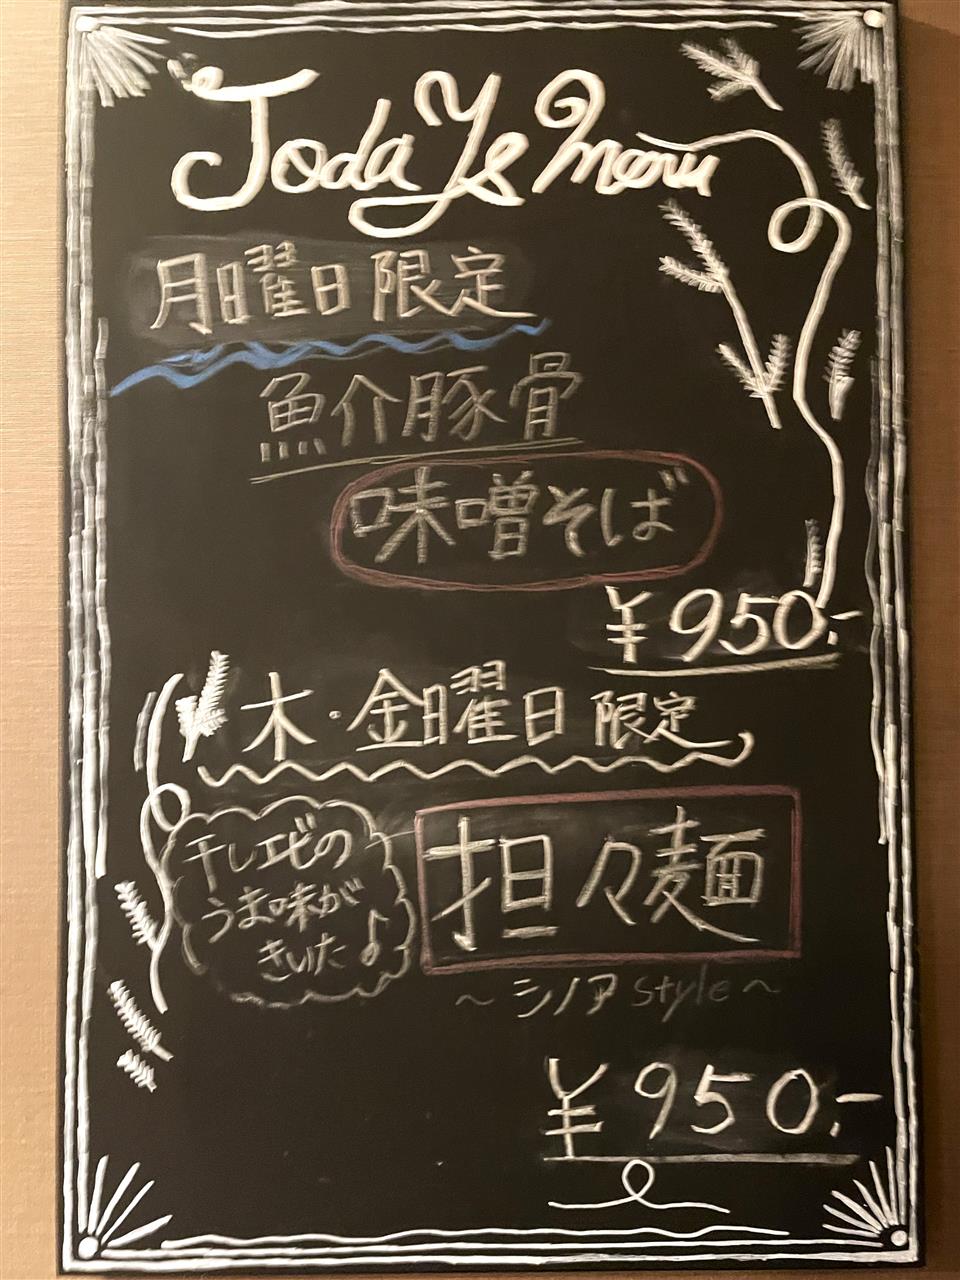 Today's menu
月曜日限定
魚介豚骨
味噌そば
¥950.-
木・金曜日限定
干しエビの
うま味が
きいた♪
担々麺
～シノア style～
¥950.-